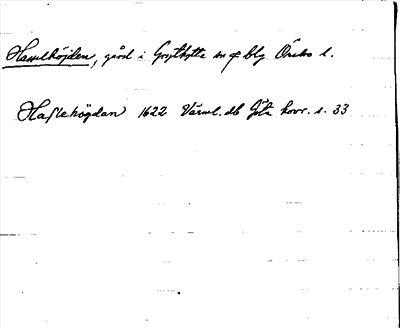 Hasselhöjden, gård i Grythytte sn o bg Örebro l.
Haslehögdan 1622 Värml. db Göta hovr. s. 33